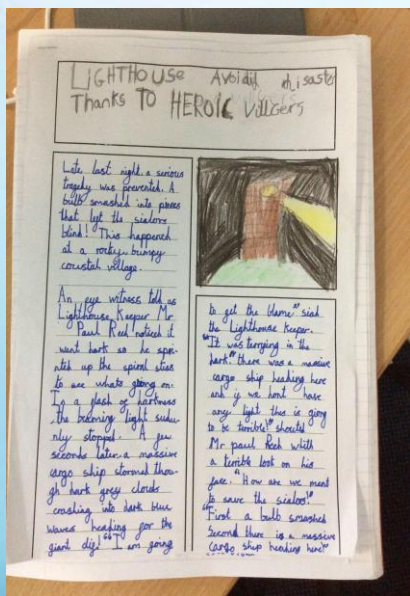 LIGHTHOUSE Avoidis disaster
Thanks TO HEROIC Villgers
Late last night, a serious
tragedy was prevented. A
bulb smashed into pieces
that left the sialors
blind! This happened
at a rocky, bumpy
coustal village.
An eye witness told as
Lighthouse Keeper Mr
Paul Reed noticed it
went dark so he spri-
nted up the spiral sties
to see whats giong on.
In a flash of darkness
the beaming light sudu-
nly stopped. A few
seconds later, a massive
cargo ship stormed thou-
gh dark grey clouds
crashing into dark blue
waves heading for the
giant
"I am going
to get the blame" siad
the Lighthouse Keeper.
"It was terrying in the
dark" there was a massive
cargo ship heading here
and if we dont have
any light this is giong
to be terrible!" shouted
Mr paul Reed whith
a terrible look on his
face. "How are we ment
to save the sialos!"
"First a bulb smashed
second there is a massive
cargo ship heading here!"